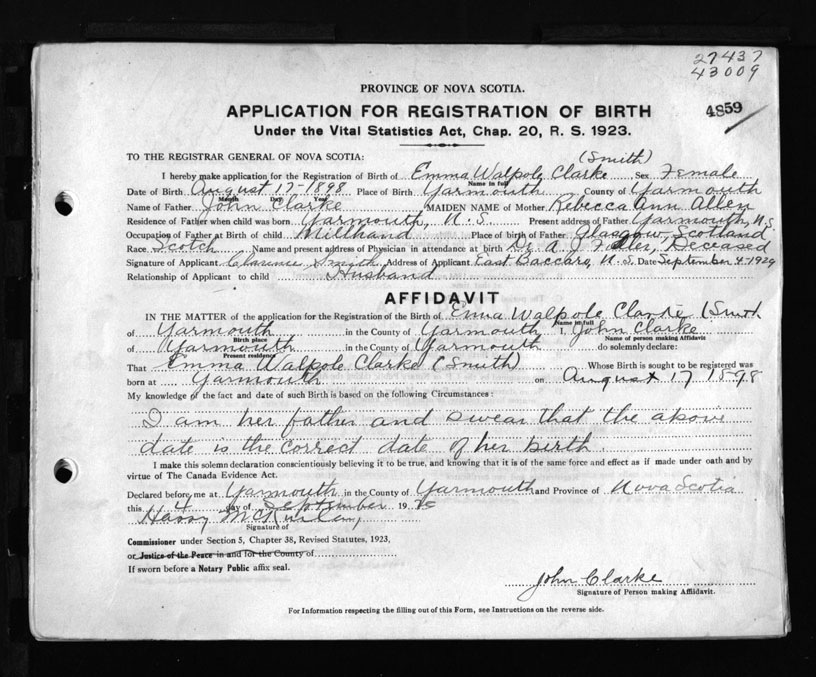 27437
43009
PROVINCE OF NOVA SCOTIA.
APPLICATION FOR REGISTRATION OF BIRTH
4859
Under the Vital Statistics Act, Chap. 20, R. S. 1923.
TO THE REGISTRAR GENERAL OF NOVA SCOTIA:
(Smith)
I hereby make application for the Registration of Birth of Emma Walpole Clarke Sex Female
Name in full
Date of Birth August 17-1898 Place of Birth Yarmouth County of Yarmouth
Month Day Year
Name of Father John Clarke MAIDEN NAME of Mother Rebecca Ann Allen
Residence of Father when child was born Yarmouth, N.S. Present address of Father Yarmouth, N.S.
Occupation of Father at Birth of child Millhand Place of birth of Father Glasgow, Scotland
Race Scotch Name and present address of Physician in attendance at birth Dr. A. J. Deceased
Signature of Applicant Clarence Smith Address of Applicant East Baccaro, N.S. Date September 4-1929
Relationship of Applicant to child Husband
AFFIDAVIT
IN THE MATTER of the application for the Registration of the Birth of Emma Walpole Clarke (Smith
Name in full
of Yarmouth in the County of Yarmouth I, John Clarke
Birth place Name of person making Affidavit
of Yarmouth in the County of Yarmouth do solemnly declare:
Present residence
That Emma Walpole Clarke (Smith) Whose Birth is sought to be registered was
born at Yarmouth on August 17 1898
My knowledge of the fact and date of such Birth is based on the following Circumstances:
I am her father and swear that the above
date is the correct date of her birth.
I make this solemn declaration conscientiously believing it to be true, and knowing that it is of the same force and effect as if made under oath and by
virtue of The Canada Evidence Act.
Declared before me at Yarmouth in the County of Yarmouth and Province of Nova Scotia
this 4 day of September 19
Harry
Signature of
Commissioner under Section 5, Chapter 38, Revised Statutes, 1923,
or Justice of the Peace in and for the County of
If sworn before a Notary Public affix seal.
John Clarke
Signature of Person making Affidavit.
For Information respecting the filling out of this Form, see Instructions on the reverse side.